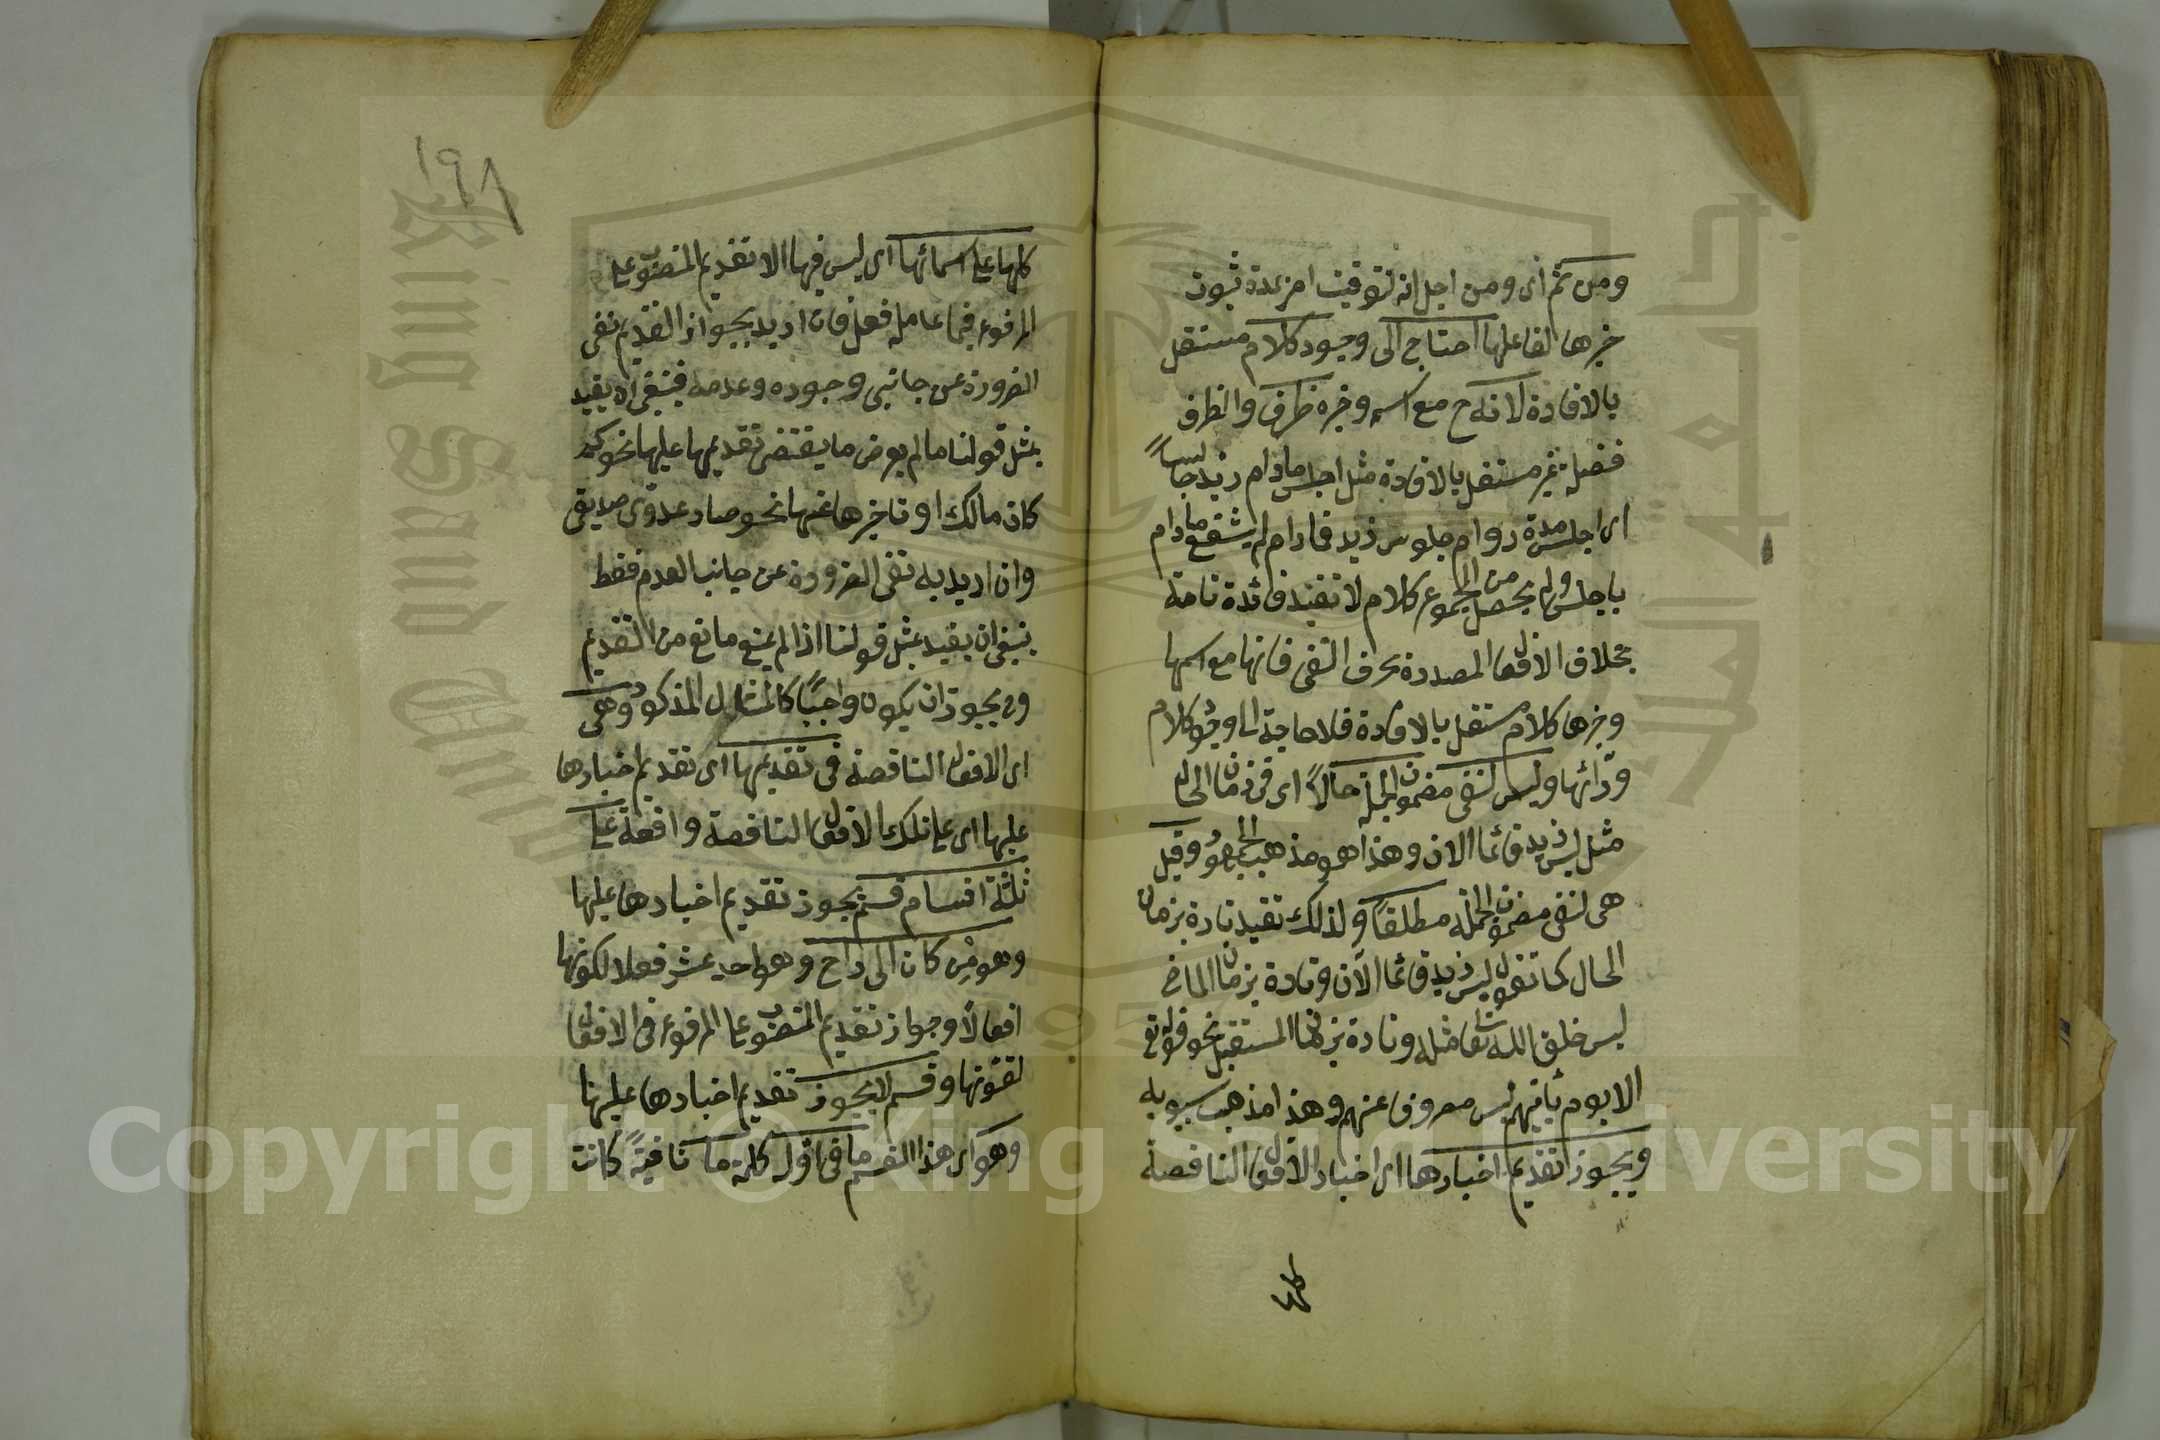 ومن ثم اى ومن اجل انه لتوقيت امر بمدة ثبوت
خبرها لفاعلها احتاج الى وجود كلام مستقل
بالافادة لانه ح مع اسمه وخبره ظرف والظرف
فضلة غير مستقل بالافادة مثل اجلس مادام زيد جالساً
اى اجلس مدة دوام جلوس زيد فمادام لم يشفع مادام
باجلس ولم يحصل من المجموع كلام لا تفيد فائدة تامة
بخلاف الافعال المصدرة بحرف النفى فانها مع اسمها
وخبرها كلام مستقل بالافادة فلا حاجة الى وجود كلام
ورائها وليس لنفى مضمون الجملة حالاً اى فى زمان الحال
مثل ليس زيد قائما الان وهذا هو مذهب الجمهور وقيل
هى لنفى مضمون الجملة مطلقاً ولذلك تقيد تارة بزمان
الحال كما تقول ليس زيد قائما الآن وتارة بزمان الماضى
ليس خلق الله تعا مثله وتارة بزمان المستقبل نحو قوله تع
الا يوم ياتيهم ليس مصروفا عنهم وهذا مذهب سيبويه
ويجوز تقديم اخبارها اى اخبار الافعال الناقصة
كلها
١٩٨
كلها على اسمائها اى ليس فيها الا تقديم المنصوب على
المرفوع فيما عامله فعل فان اريد بجواز التقديم نفى
الضرورة عن جانبى وجوده وعدمه فينبغى ان يقيد
بمثل قولنا ما لم يعرض ما يقتضى تقديمها عليها نحو كم
كان مالك او تاخيرها عنها نحو صار عدوى صديقى
وان اريد به نفى الضرورة عن جانب العدم فقط
ينبغى ان يقيد بمثل قولنا اذا لم يمنع مانع من التقديم
وح يجوز ان يكون واجباً كالمثال المذكور وهى
اى الافعال الناقصة فى تقديمها اى تقديم اخبارها
عليها اى على تلك الافعال الناقصة واقعة على
ثلثة اقسام قسم يجوز تقديم اخبارها عليها
وهو من كان الى راح وهو احد عشر فعلا لكونها
افعالا وجواز تقديم المنصوب على المرفوع فى الافعال
لقوتها وقسم لا يجوز تقديم اخبارها عليها
وهو اى هذا القسم ما فى اوله كلمة ما نافيةً كانت
King Saud University
جامعة الملك سعود
1957
Copyright © King Saud University